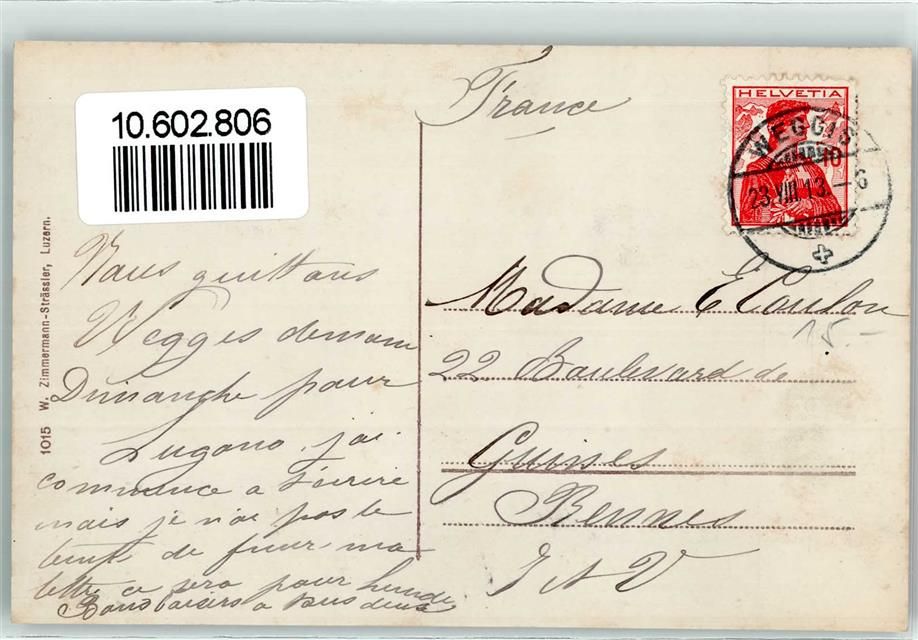 10.602.806
France
HELVETIA
10
WEGGIS
23.VIII.13.-6
1015 W. Zimmermann-Strässler, Luzern.
Nous quittons
Wegges demain
Dimanche pour
Lugano, jai
commence a t'ecrire
mais je n'ai pas le
temps de finir ma
lettre ce sera pour lundi
Bons baisers a tous deux
Madame E Coulon
15.-
22 Boulevard de
Guines
Rennes
I et V